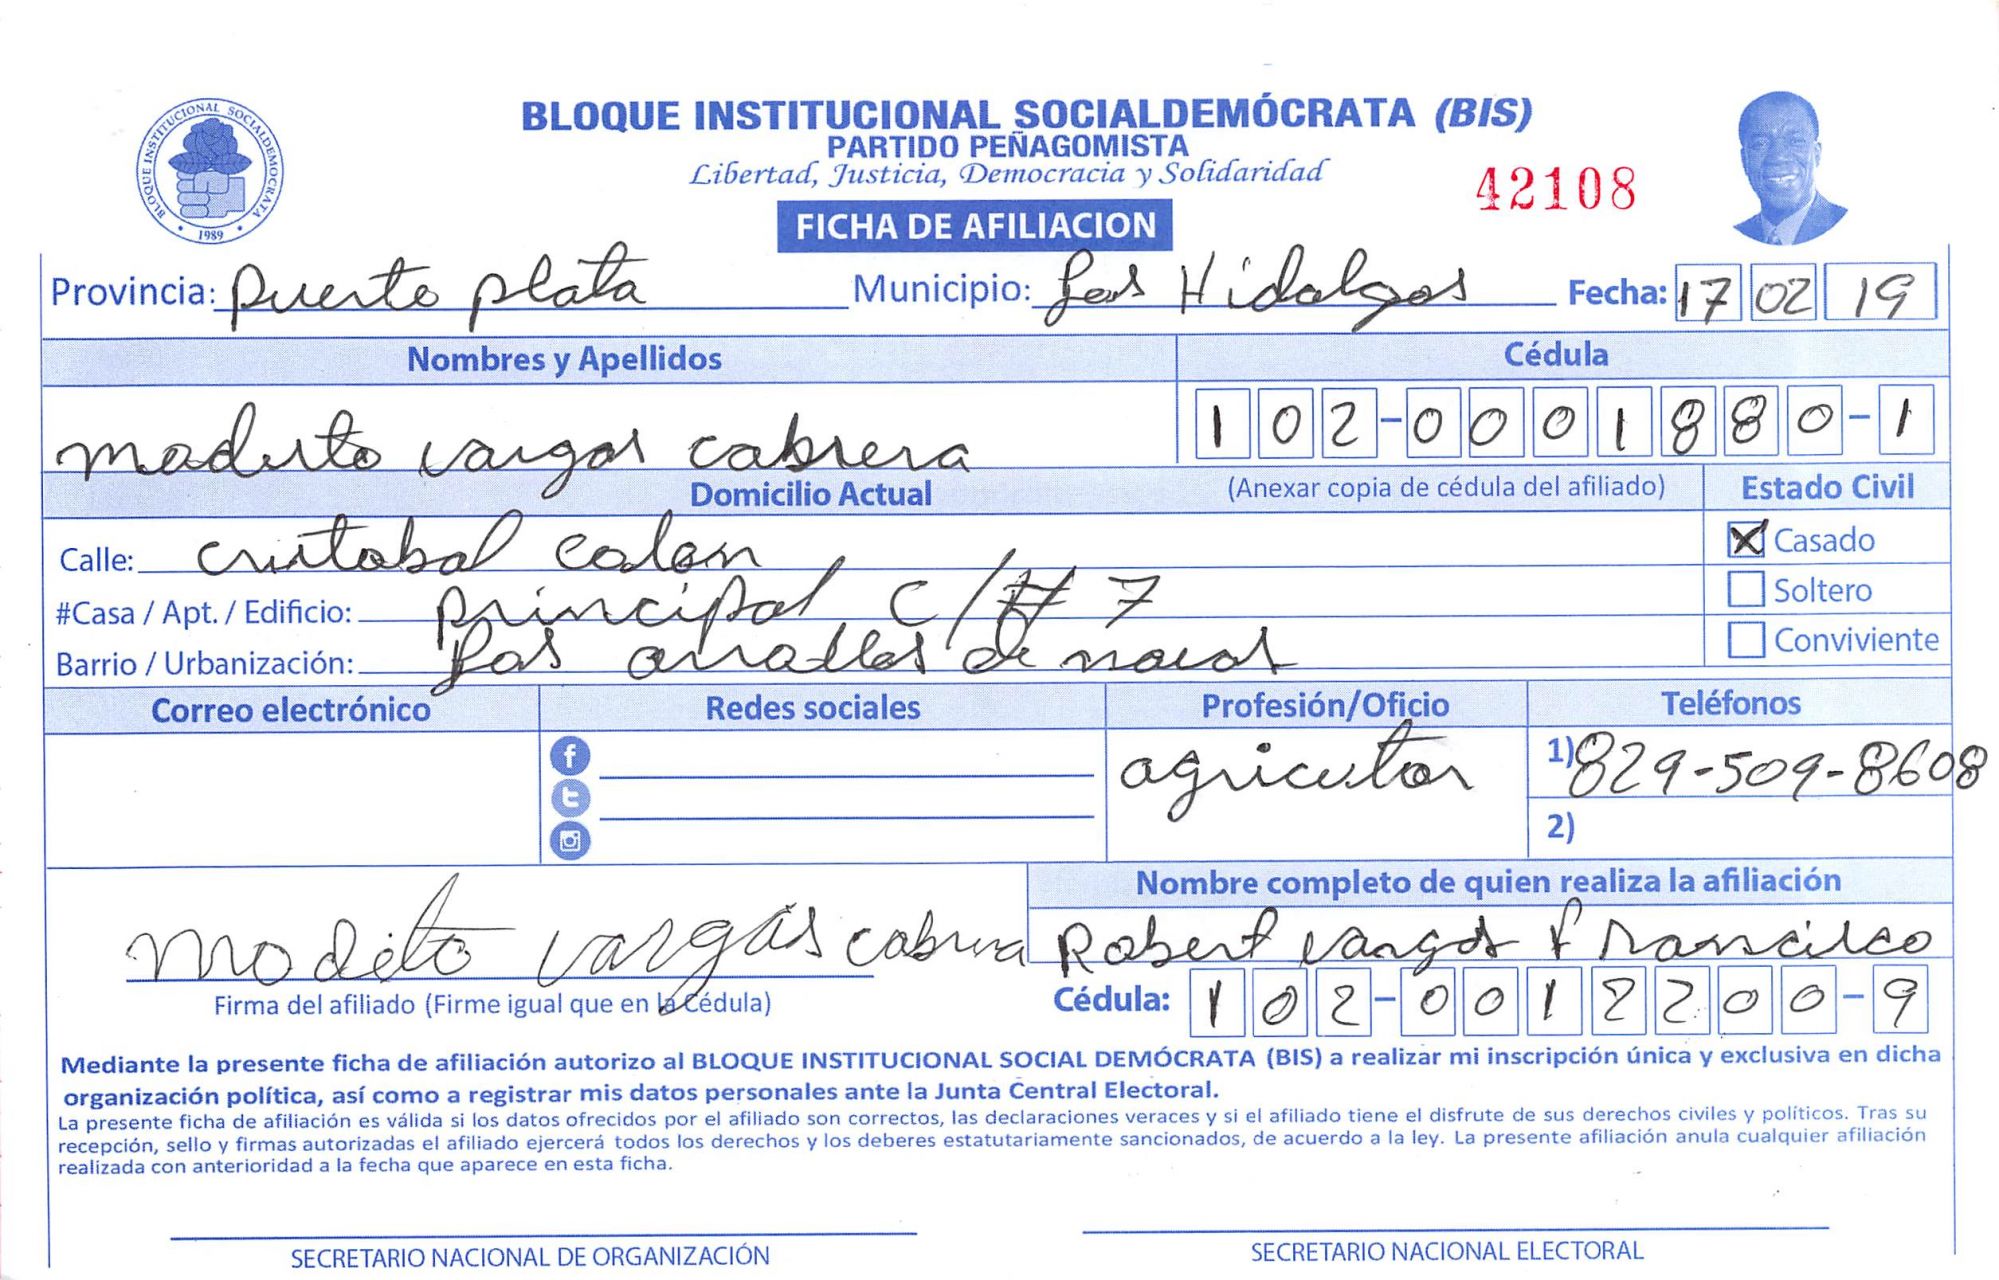 BLOQUE INSTITUCIONAL SOCIALDEMOCRATA
1989
BLOQUE INSTITUCIONAL SOCIALDEMÓCRATA (BIS)
PARTIDO PEÑAGOMISTA
Libertad, Justicia, Democracia y Solidaridad
42108
FICHA DE AFILIACION
Provincia: Puerto plata Municipio: Los Hidalgos Fecha: 17 02 19
Nombres y Apellidos Cédula
madesto vargas cabrera 102-0001880-1
Domicilio Actual (Anexar copia de cédula del afiliado) Estado Civil
Calle: cristobal colon X Casado
#Casa / Apt. / Edificio: principal C/# 7 Soltero
Barrio / Urbanización: Los de navas Conviviente
Correo electrónico Redes sociales Profesión/Oficio Teléfonos
agricutor 1) 829-509-8608
2)
Nombre completo de quien realiza la afiliación
Modeto vargas cabrera Robert vargas Francisco
Firma del afiliado (Firme igual que en la Cédula) Cédula: 102-0012200-9
Mediante la presente ficha de afiliación autorizo al BLOQUE INSTITUCIONAL SOCIAL DEMÓCRATA (BIS) a realizar mi inscripción única y exclusiva en dicha
organización política, así como a registrar mis datos personales ante la Junta Central Electoral.
La presente ficha de afiliación es válida si los datos ofrecidos por el afiliado son correctos, las declaraciones veraces y si el afiliado tiene el disfrute de sus derechos civiles y políticos. Tras su
recepción, sello y firmas autorizadas el afiliado ejercerá todos los derechos y los deberes estatutariamente sancionados, de acuerdo a la ley. La presente afiliación anula cualquier afiliación
realizada con anterioridad a la fecha que aparece en esta ficha.
SECRETARIO NACIONAL DE ORGANIZACIÓN SECRETARIO NACIONAL ELECTORAL